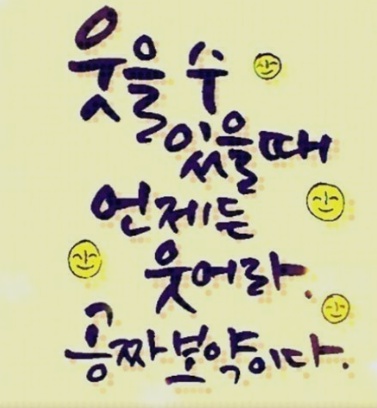 웃을 수
있을때
언제든
웃어라.
공짜보약이다.